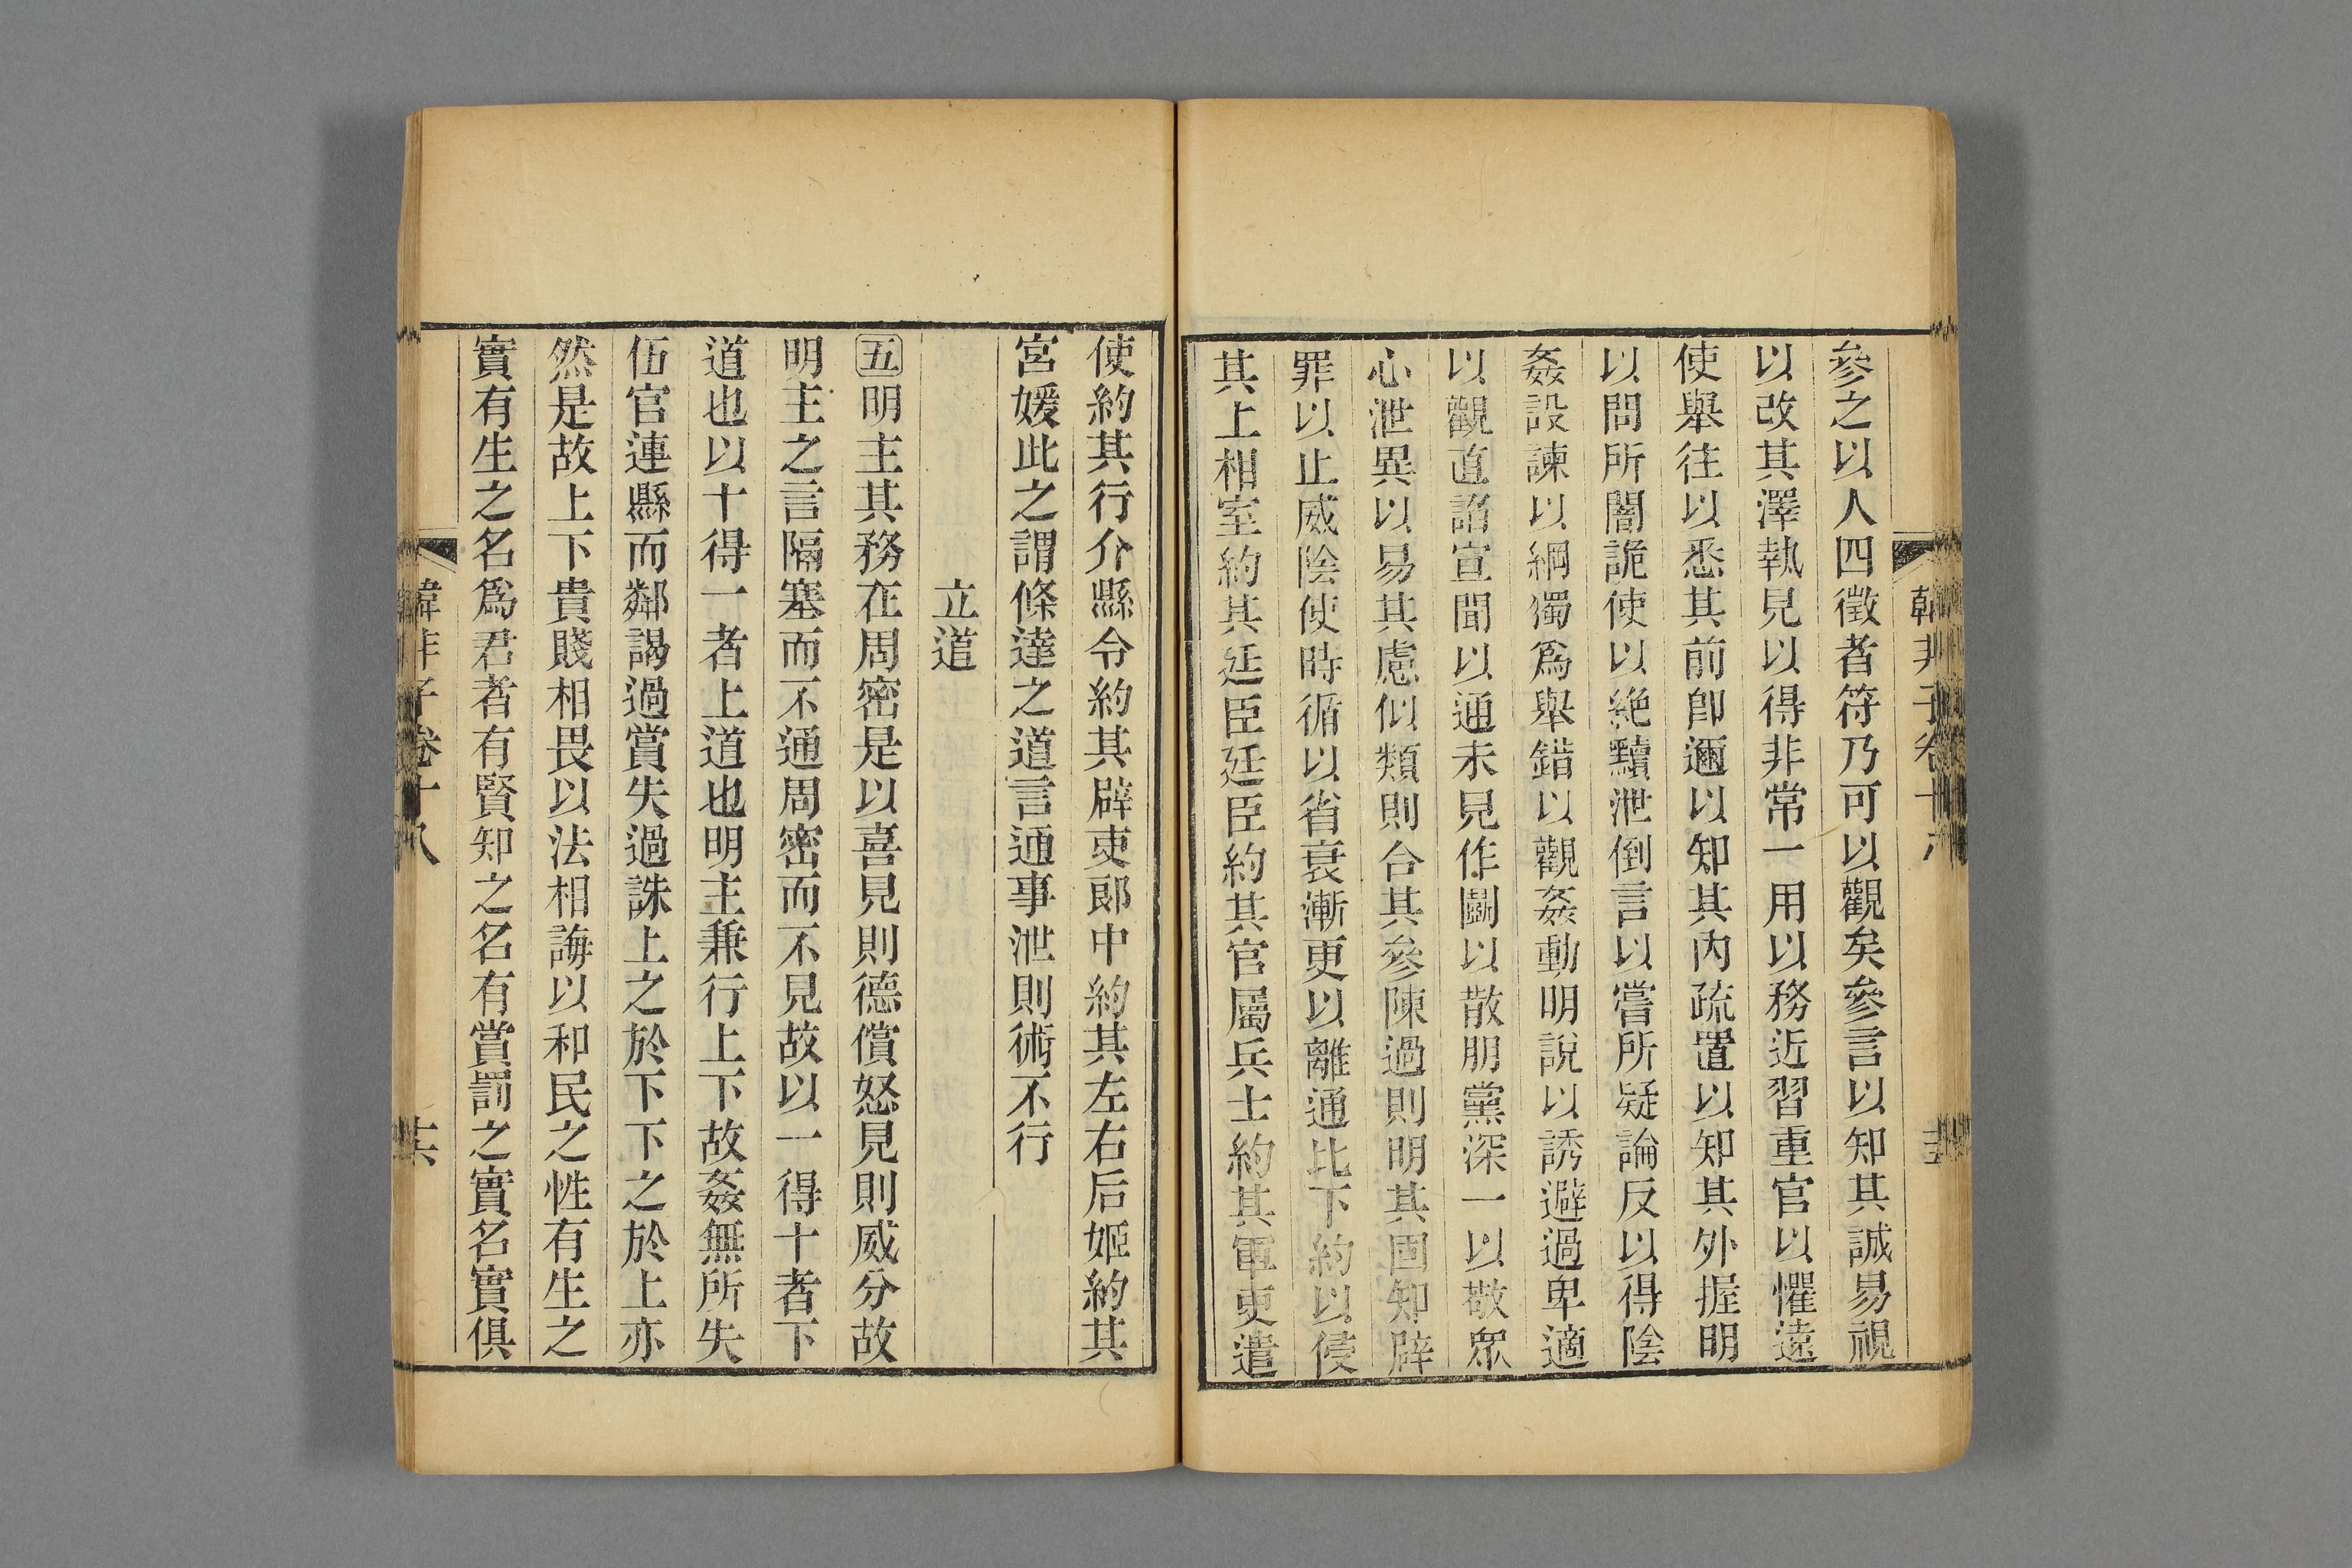 韓非子卷十八
參之以人四徵者符乃可以觀矣參言以知其誠易視
以改其澤執見以得非常一用以務近習重官以懼遠
使舉往以悉其前卽邇以知其內疏置以知其外握明
以問所闇詭使以絶黷泄倒言以嘗所疑論反以得陰
姦設諫以綱獨爲舉錯以觀姦動明說以誘避過卑適
以觀直諂宣聞以通未見作鬭以散朋黨深一以敬眾
心泄異以易其慮似類則合其參陳過則明其固知辟
罪以止威陰使時循以省衰漸更以離通比下約以侵
其上相室約其廷臣廷臣約其官屬兵士約其軍吏遣
使約其行介縣令約其辟吏郎中約其左右后姬約其
宮媛此之謂條達之道言通事泄則術不行
立道
五明主其務在周密是以喜見則德償怒見則威分故
明主之言隔塞而不通周密而不見故以一得十者下
道也以十得一者上道也明主兼行上下故姦無所失
伍官連縣而鄰謁過賞失過誅上之於下下之於上亦
然是故上下貴賤相畏以法相誨以和民之性有生之
實有生之名爲君者有賢知之名有賞罰之實名實俱
韓非子卷十八